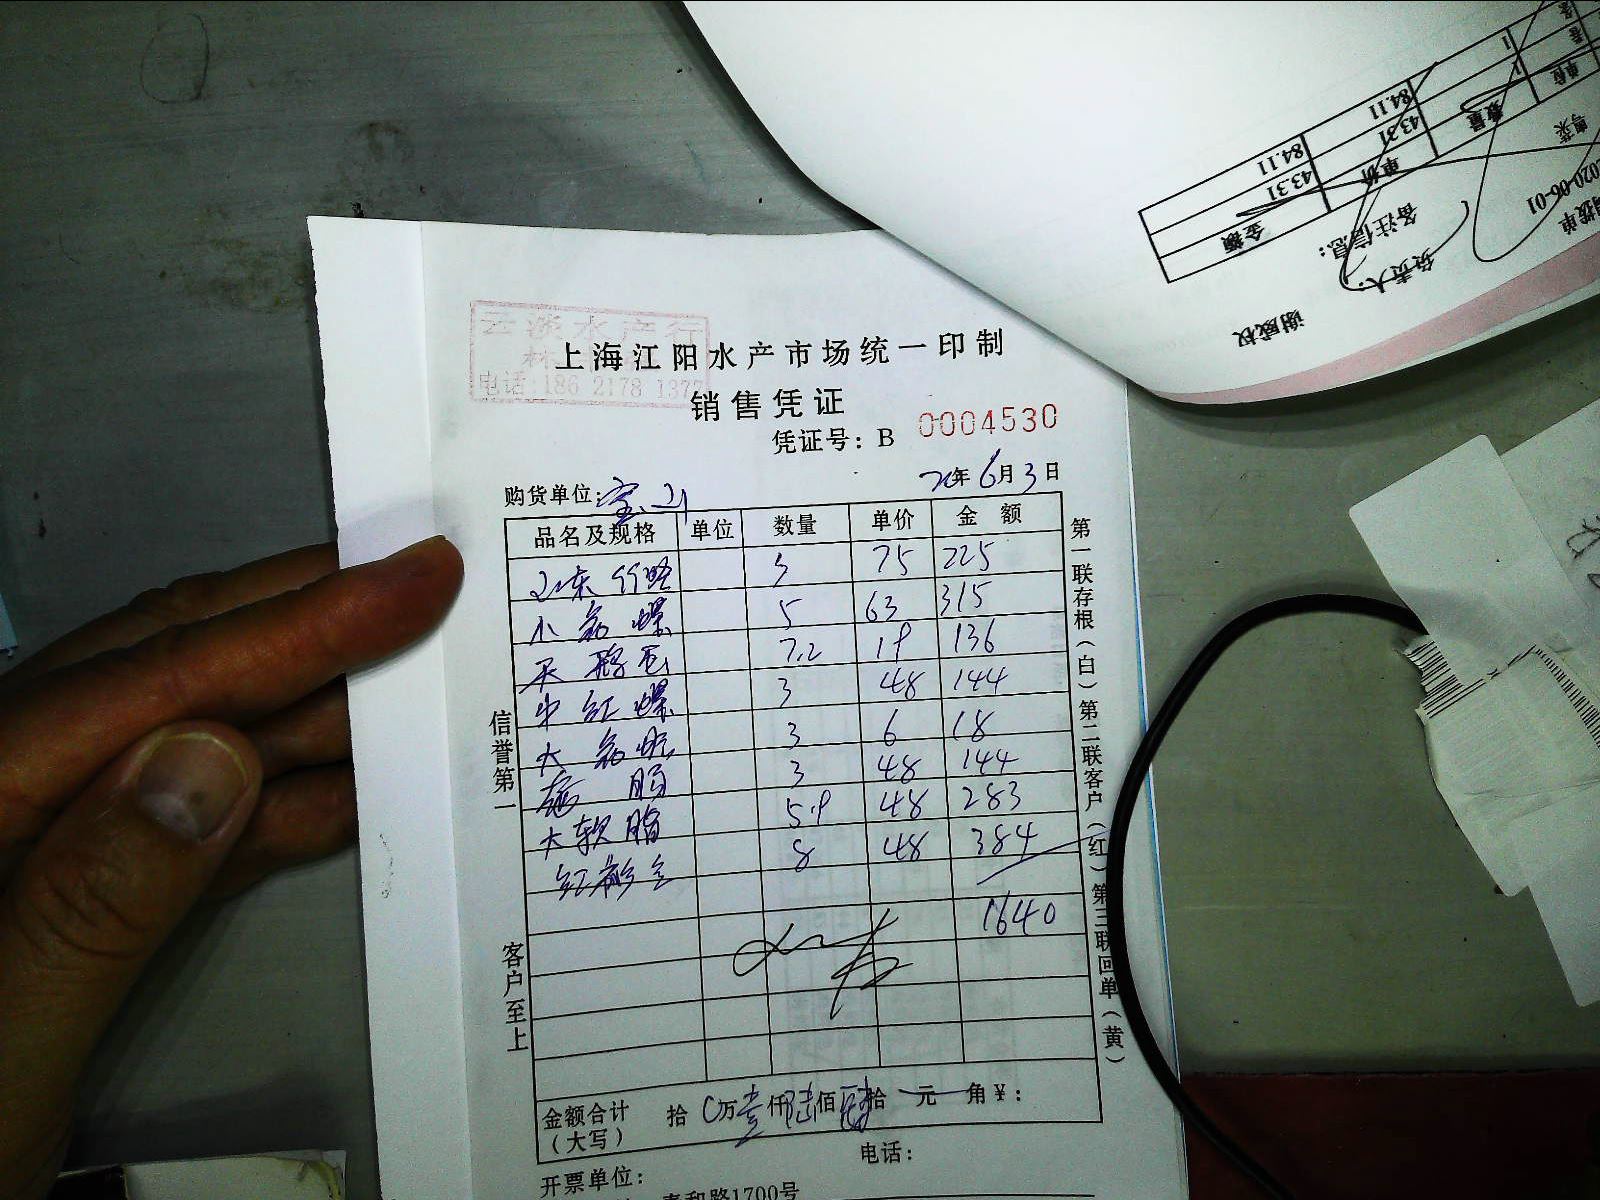 云淡水产行
电话:186 2178 1377
上海江阳水产市场统一印制
销售凭证
凭证号：B 0004530
购货单位：宝山 20年6月3日
品名及规格 单位 数量 单价 金额
山东竹蛏 3 75 225
小 螺 5 63 315
天鹅 7.2 19 136
中红螺 3 48 144
大 3 6 18
3 48 144
大软脂 5.9 48 283
红 8 48 384
1640
金额合计（大写） 拾 0万壹仟陆佰肆拾 元 角¥：
开票单位： 电话：
泰和路1700号
信誉第一 客户至上
第一联存根（白）第二联客户（红）第三联回单（黄）
调拨单
2020-06-01
粤菜
单位 数量 单价 金额
1 43.31 43.31
1 84.11 84.11
备注信息：
负责人：
谢威权